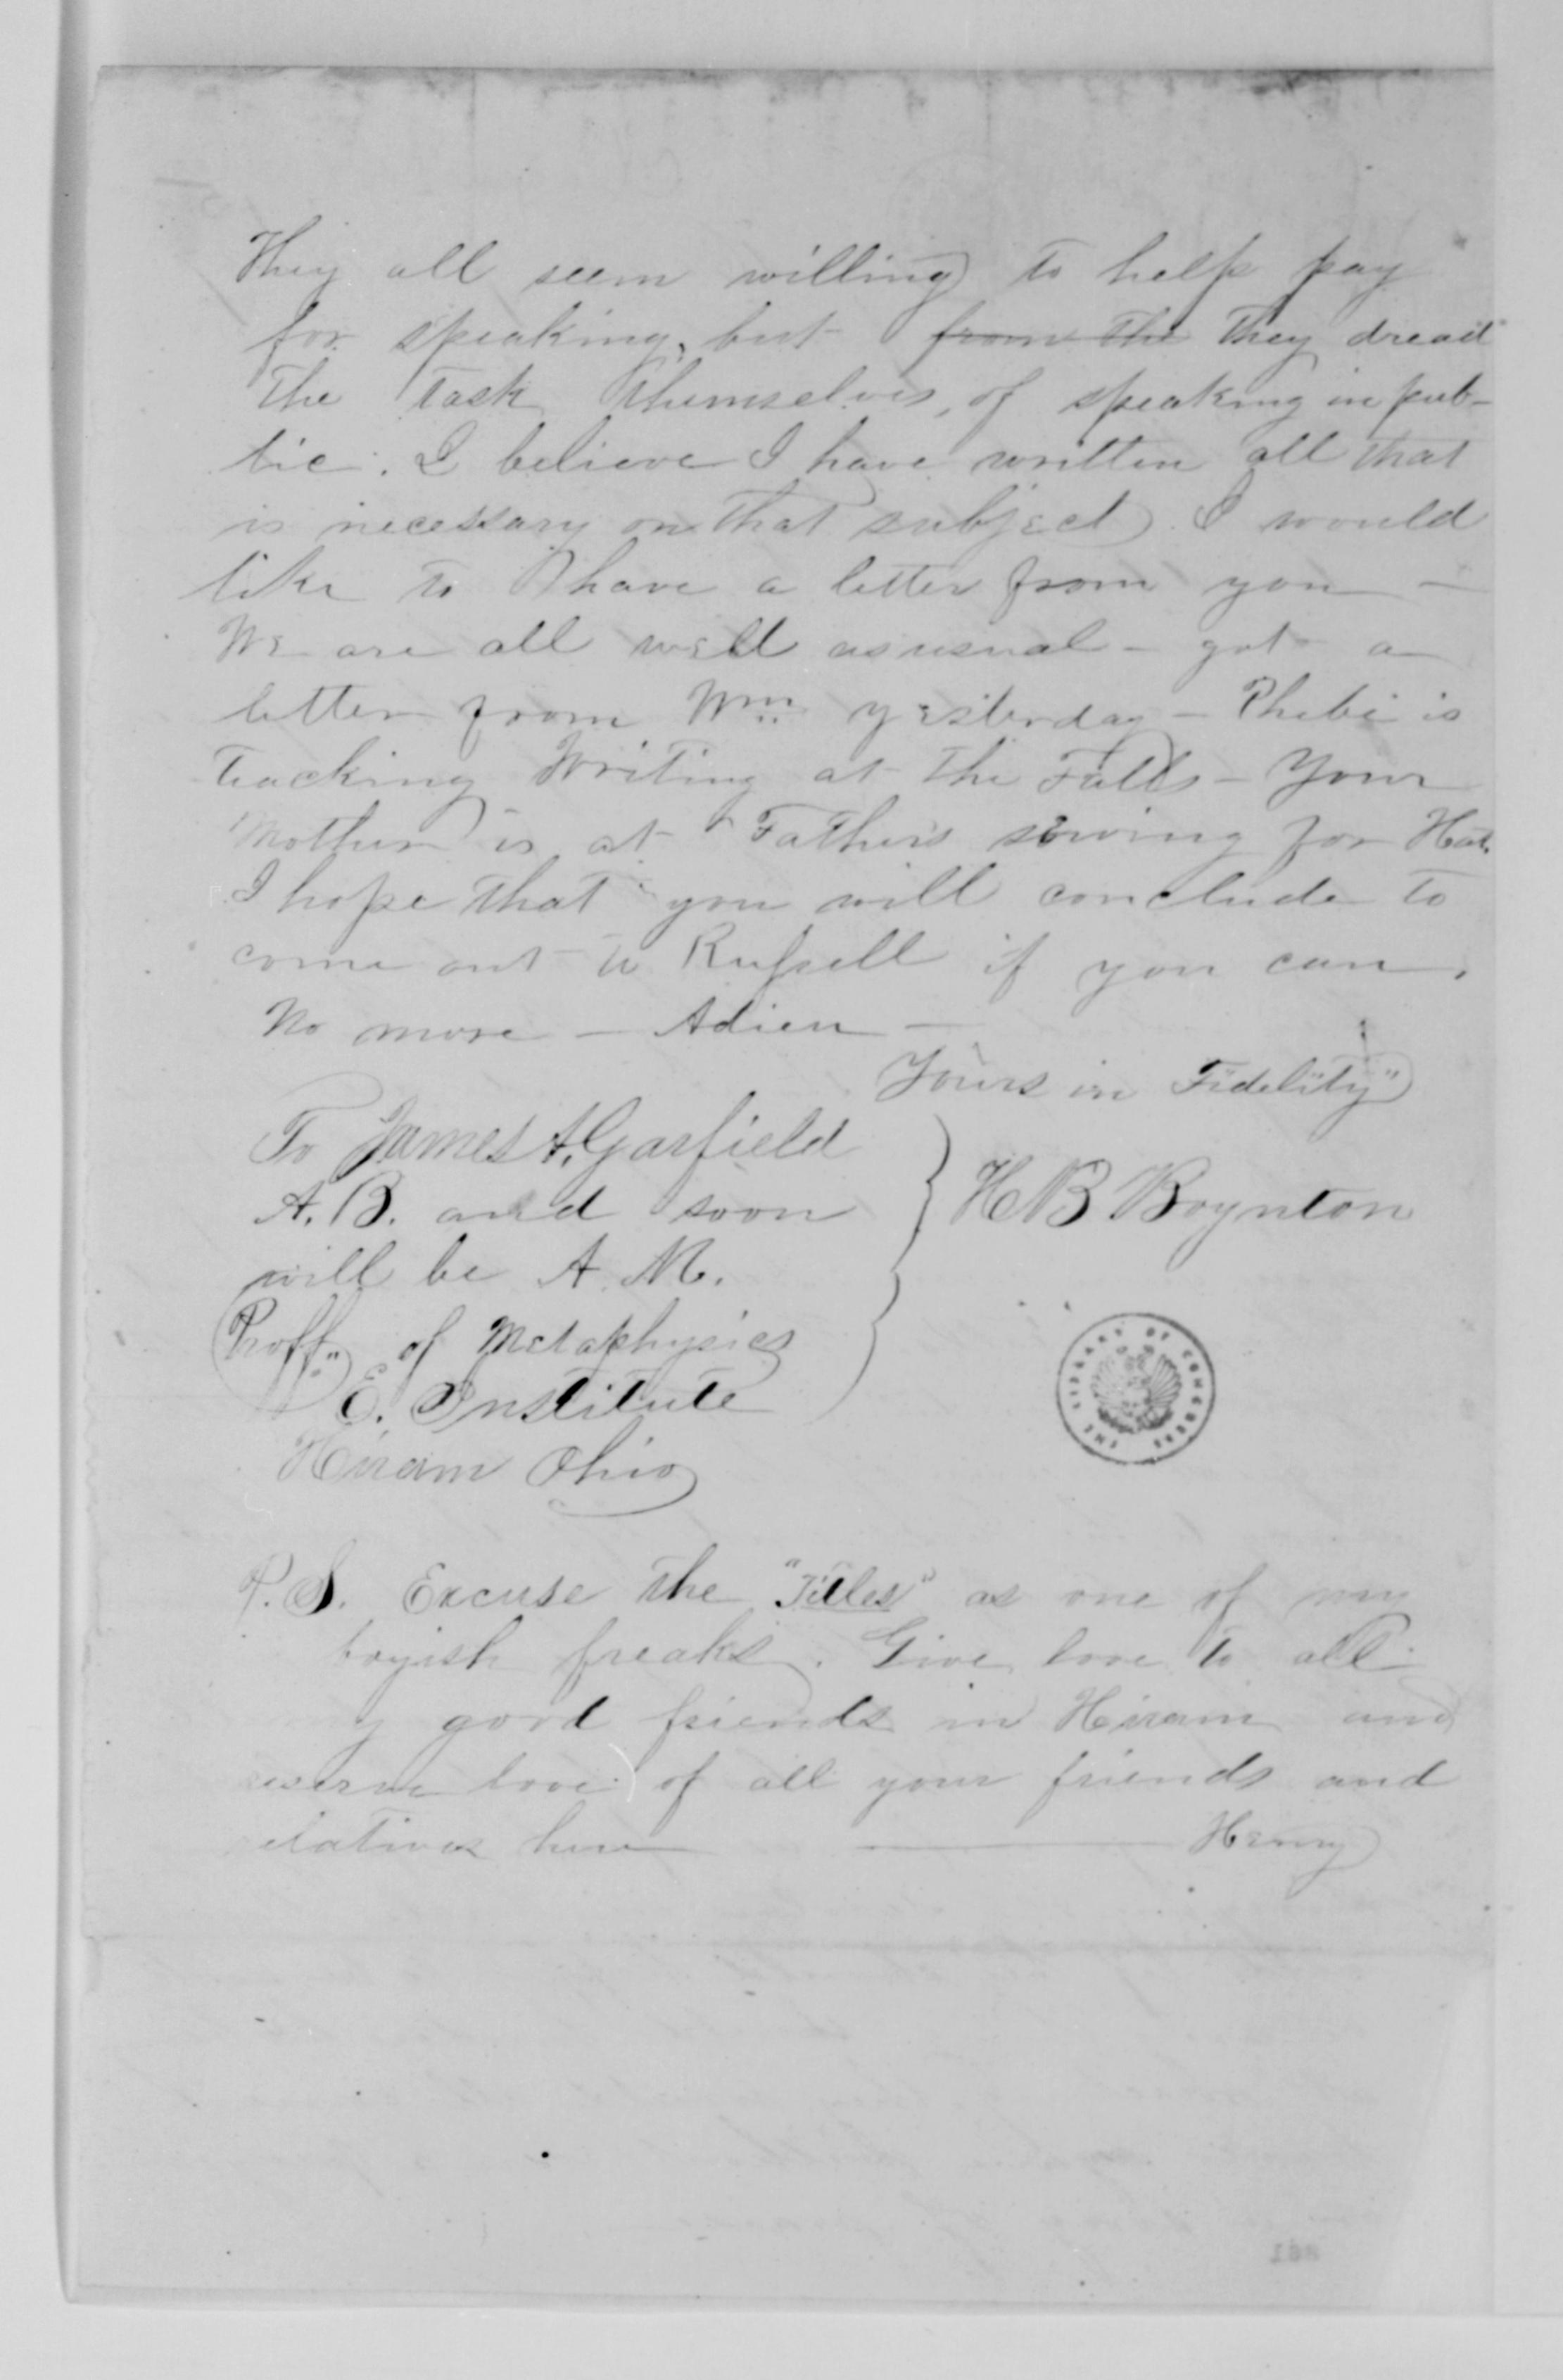 They all seem willing to help pay
for speaking, but from the they dread
the task themselves, of speaking in pub-
lic. I believe I have written all that
is necessary on that subject. I would
like to have a letter from you —
We are all well as usual - got a
letter from Wm yesterday - Phebe is
teaching Writing at the Falls - Your
Mother is at Fathers sewing for Hat.
I hope that you will conclude to
come out to Russell if you can.
No more — Adieu —
Yours in Fidelity"
To James A. Garfield
A. B. and soon
H B Boynton
will be A. M.
Proff. of Metaphysics
E. Institute
Hiram Ohio
THE LIBRARY OF CONGRESS
P.S. Excuse the "Titles" as one of my
boyish freaks. Give love to all
good friends in Hiram and
love of all your friends and
elatives here ——— Henry